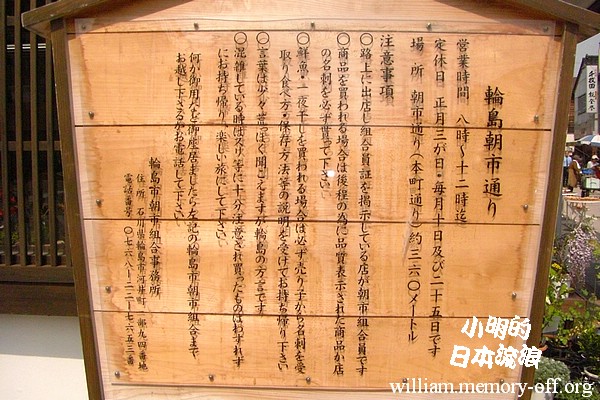 輪島朝市通り
営業時間 八時〜十二時迄
定休日 正月三が日・毎月十日及び二十五日です
場所 朝市通り(本町通り)約三六〇メートル
注意事項
〇路上に出店し組合員証を掲示している店が朝市組合員です
〇商品を買われる場合は後程の為に品質表示された商品か店
の名刺を必ず貰って下さい
〇鮮魚・一夜干しを買われる場合は必ず売り子から名刺を受
取り食べ方・保存方法等の説明を受けてお持ち帰り下さい
〇言葉は少々荒っぽく聞こえますが輪島の方言です
〇混雑している時はスリ等に十分注意され買ったものはわすれず
にお持ち帰り、楽しい旅にして下さい
何か御用件など御座居ましたら左記の輪島市朝市組合まで
お越し下さるかお電話して下さい
輪島市朝市組合事務所
住所 石川県輪島市河井町一部九四番地
電話番号 〇七六八-二二-七六五三番
小明的
日本流浪
william.memory-off.org